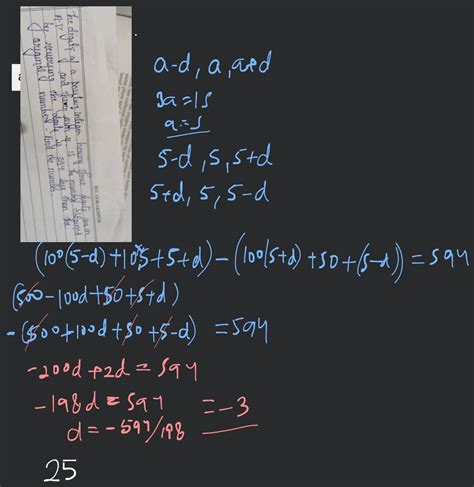 The digits of a positive integer having three digits are in
A.P. and their sum is 15. The number obtained
by reversing the digits is 594 less than the
original number. Find the number.
a-d, a, a+d
3a=15
a=5
5-d, 5, 5+d
5+d, 5, 5-d
(100(5-d)+10×5+5+d)-(100(5+d)+50+(5-d))=594
(500-100d+50+5+d)
-(500+100d+50+5-d)=594
-200d+2d=594
-198d=594 =-3
d=-594/198
25